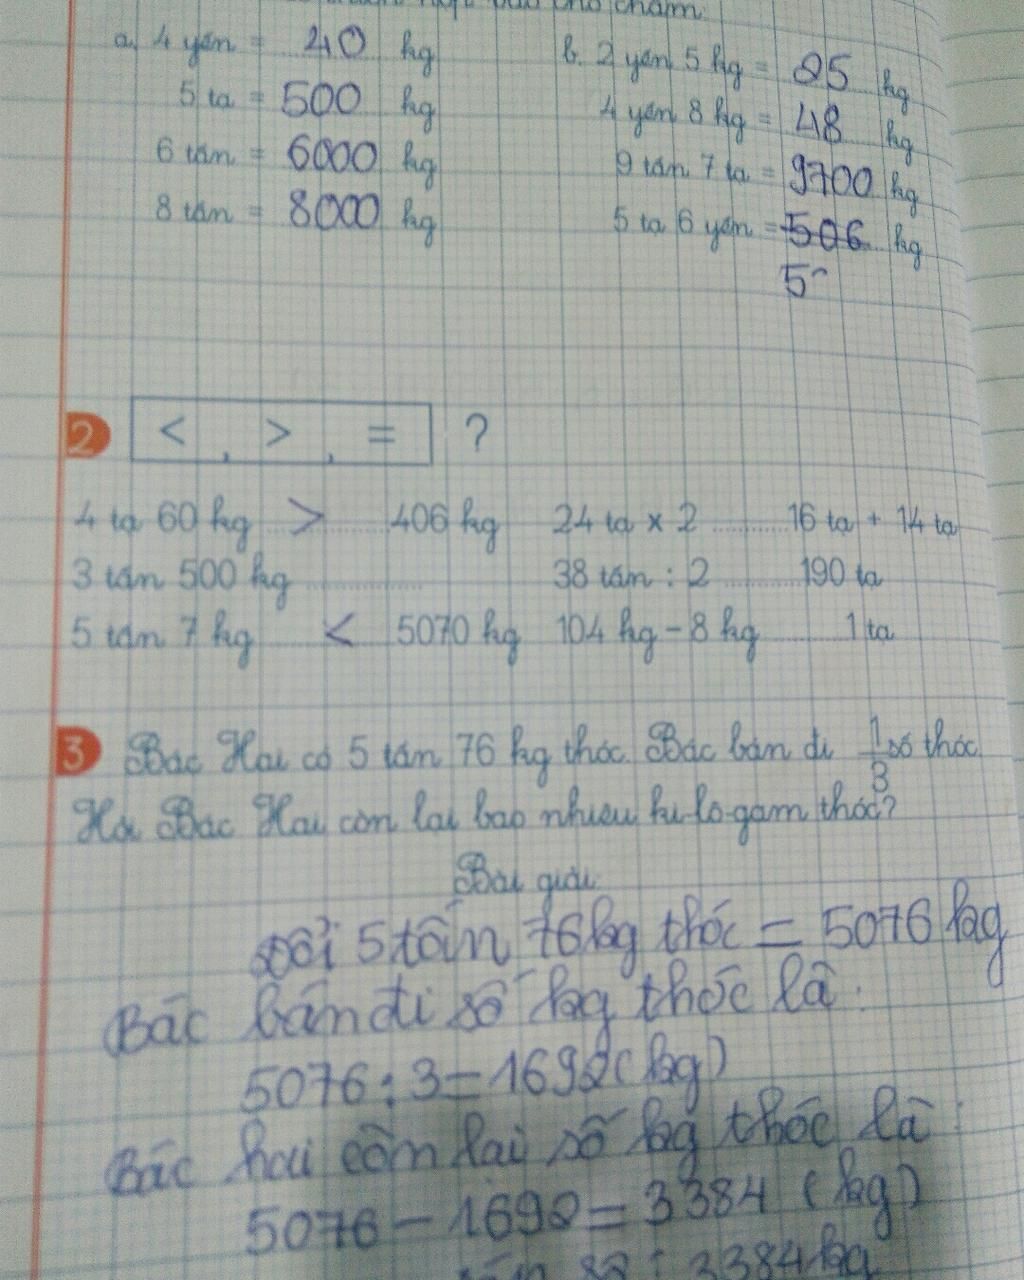 chấm
a, 4 yến = 40 kg
5 tạ = 500 kg
6 tấn = 6000 kg
8 tấn = 8000 kg
b. 2 yến 5 kg = 25 kg
4 yến 8 kg = 48 kg
9 tấn 7 tạ = 9700 kg
5 tạ 6 yến = 506 kg
5
2 < , > , = ?
4 tạ 60 kg > 406 kg
3 tấn 500 kg ............
5 tấn 7 kg < 5070 kg
24 tạ x 2 ............ 16 tạ + 14 tạ
38 tấn : 2 ............ 190 tạ
104 kg - 8 kg ............ 1 tạ
3 Bác Hai có 5 tấn 76 kg thóc. Bác bán đi 1/3 số thóc.
Hỏi Bác Hai còn lại bao nhiêu ki-lô-gam thóc?
Bài giải
Đổi 5 tấn 76 kg thóc = 5076 kg
Bác bán đi số kg thóc là:
5076 : 3 = 1692 (kg)
Bác hai còn lại số kg thóc là:
5076 - 1692 = 3384 (kg)
: 3384 kg